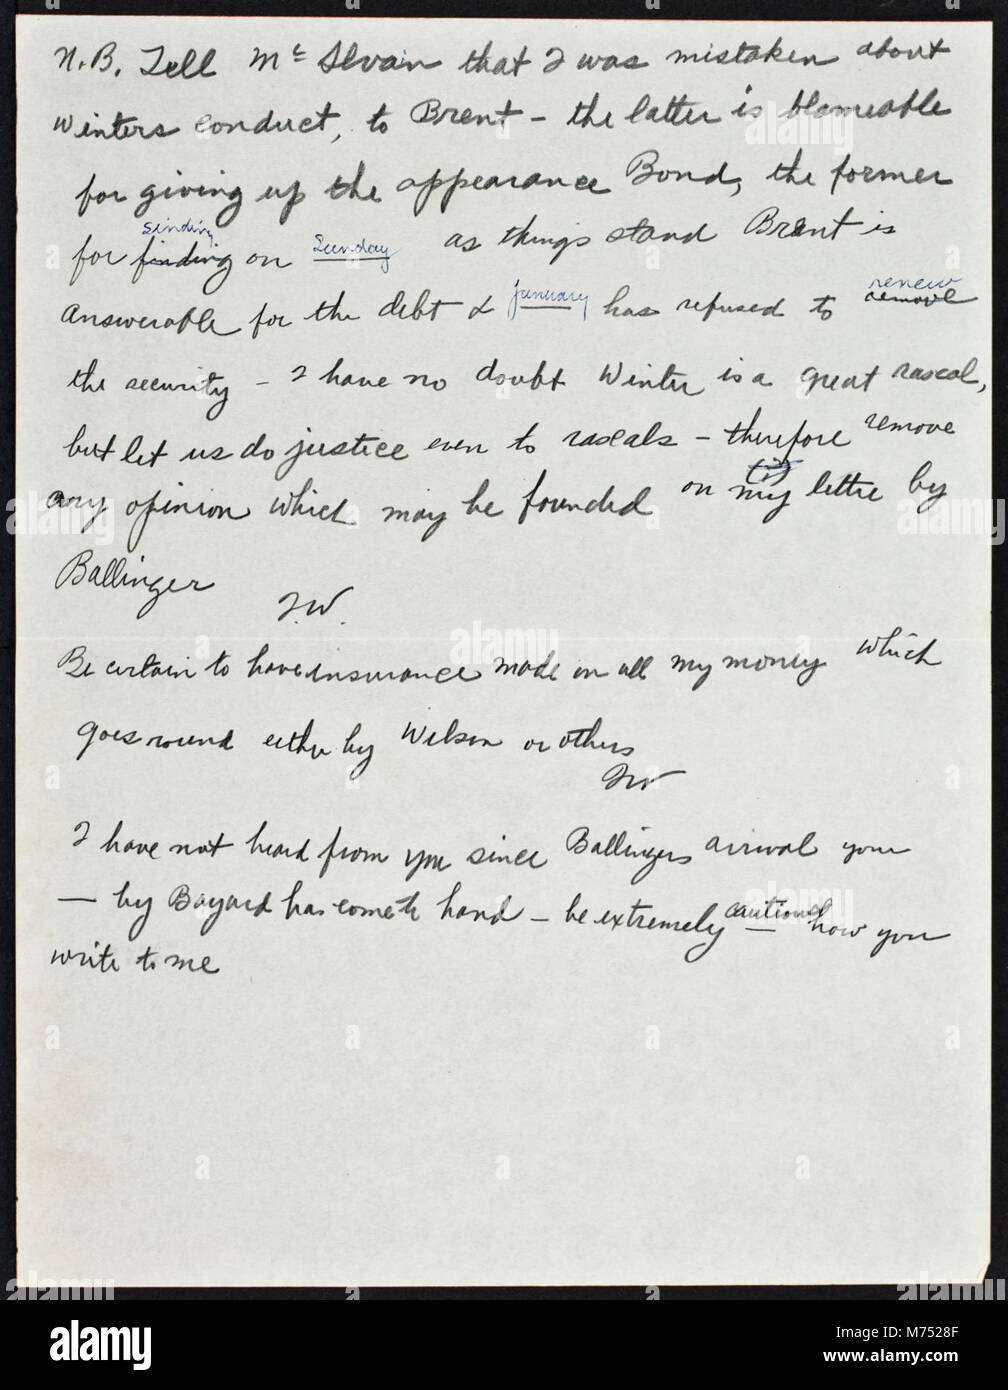 N.B. Tell Mc Ilvain that I was mistaken about
Winters conduct, to Brent – the latter is blameable
for giving up the appearance Bond, the former
sending
for finding on Sunday as things stand Brent is
January renew
answerable for the debt & has refused to remove
the security – I have no doubt Winter is a great rascal,
but let us do justice even to rascals – therefore remove
any opinion which may be founded on my letter by
Ballinger
J.W.
Be certain to have insurance made on all my money which
goes round either by Wilson or others
JW
I have not heard from you since Ballingers arrival your
— by Bayard has come to hand – be extremely cautious how you
write to me
alamy
Image ID: M7528F
www.alamy.com